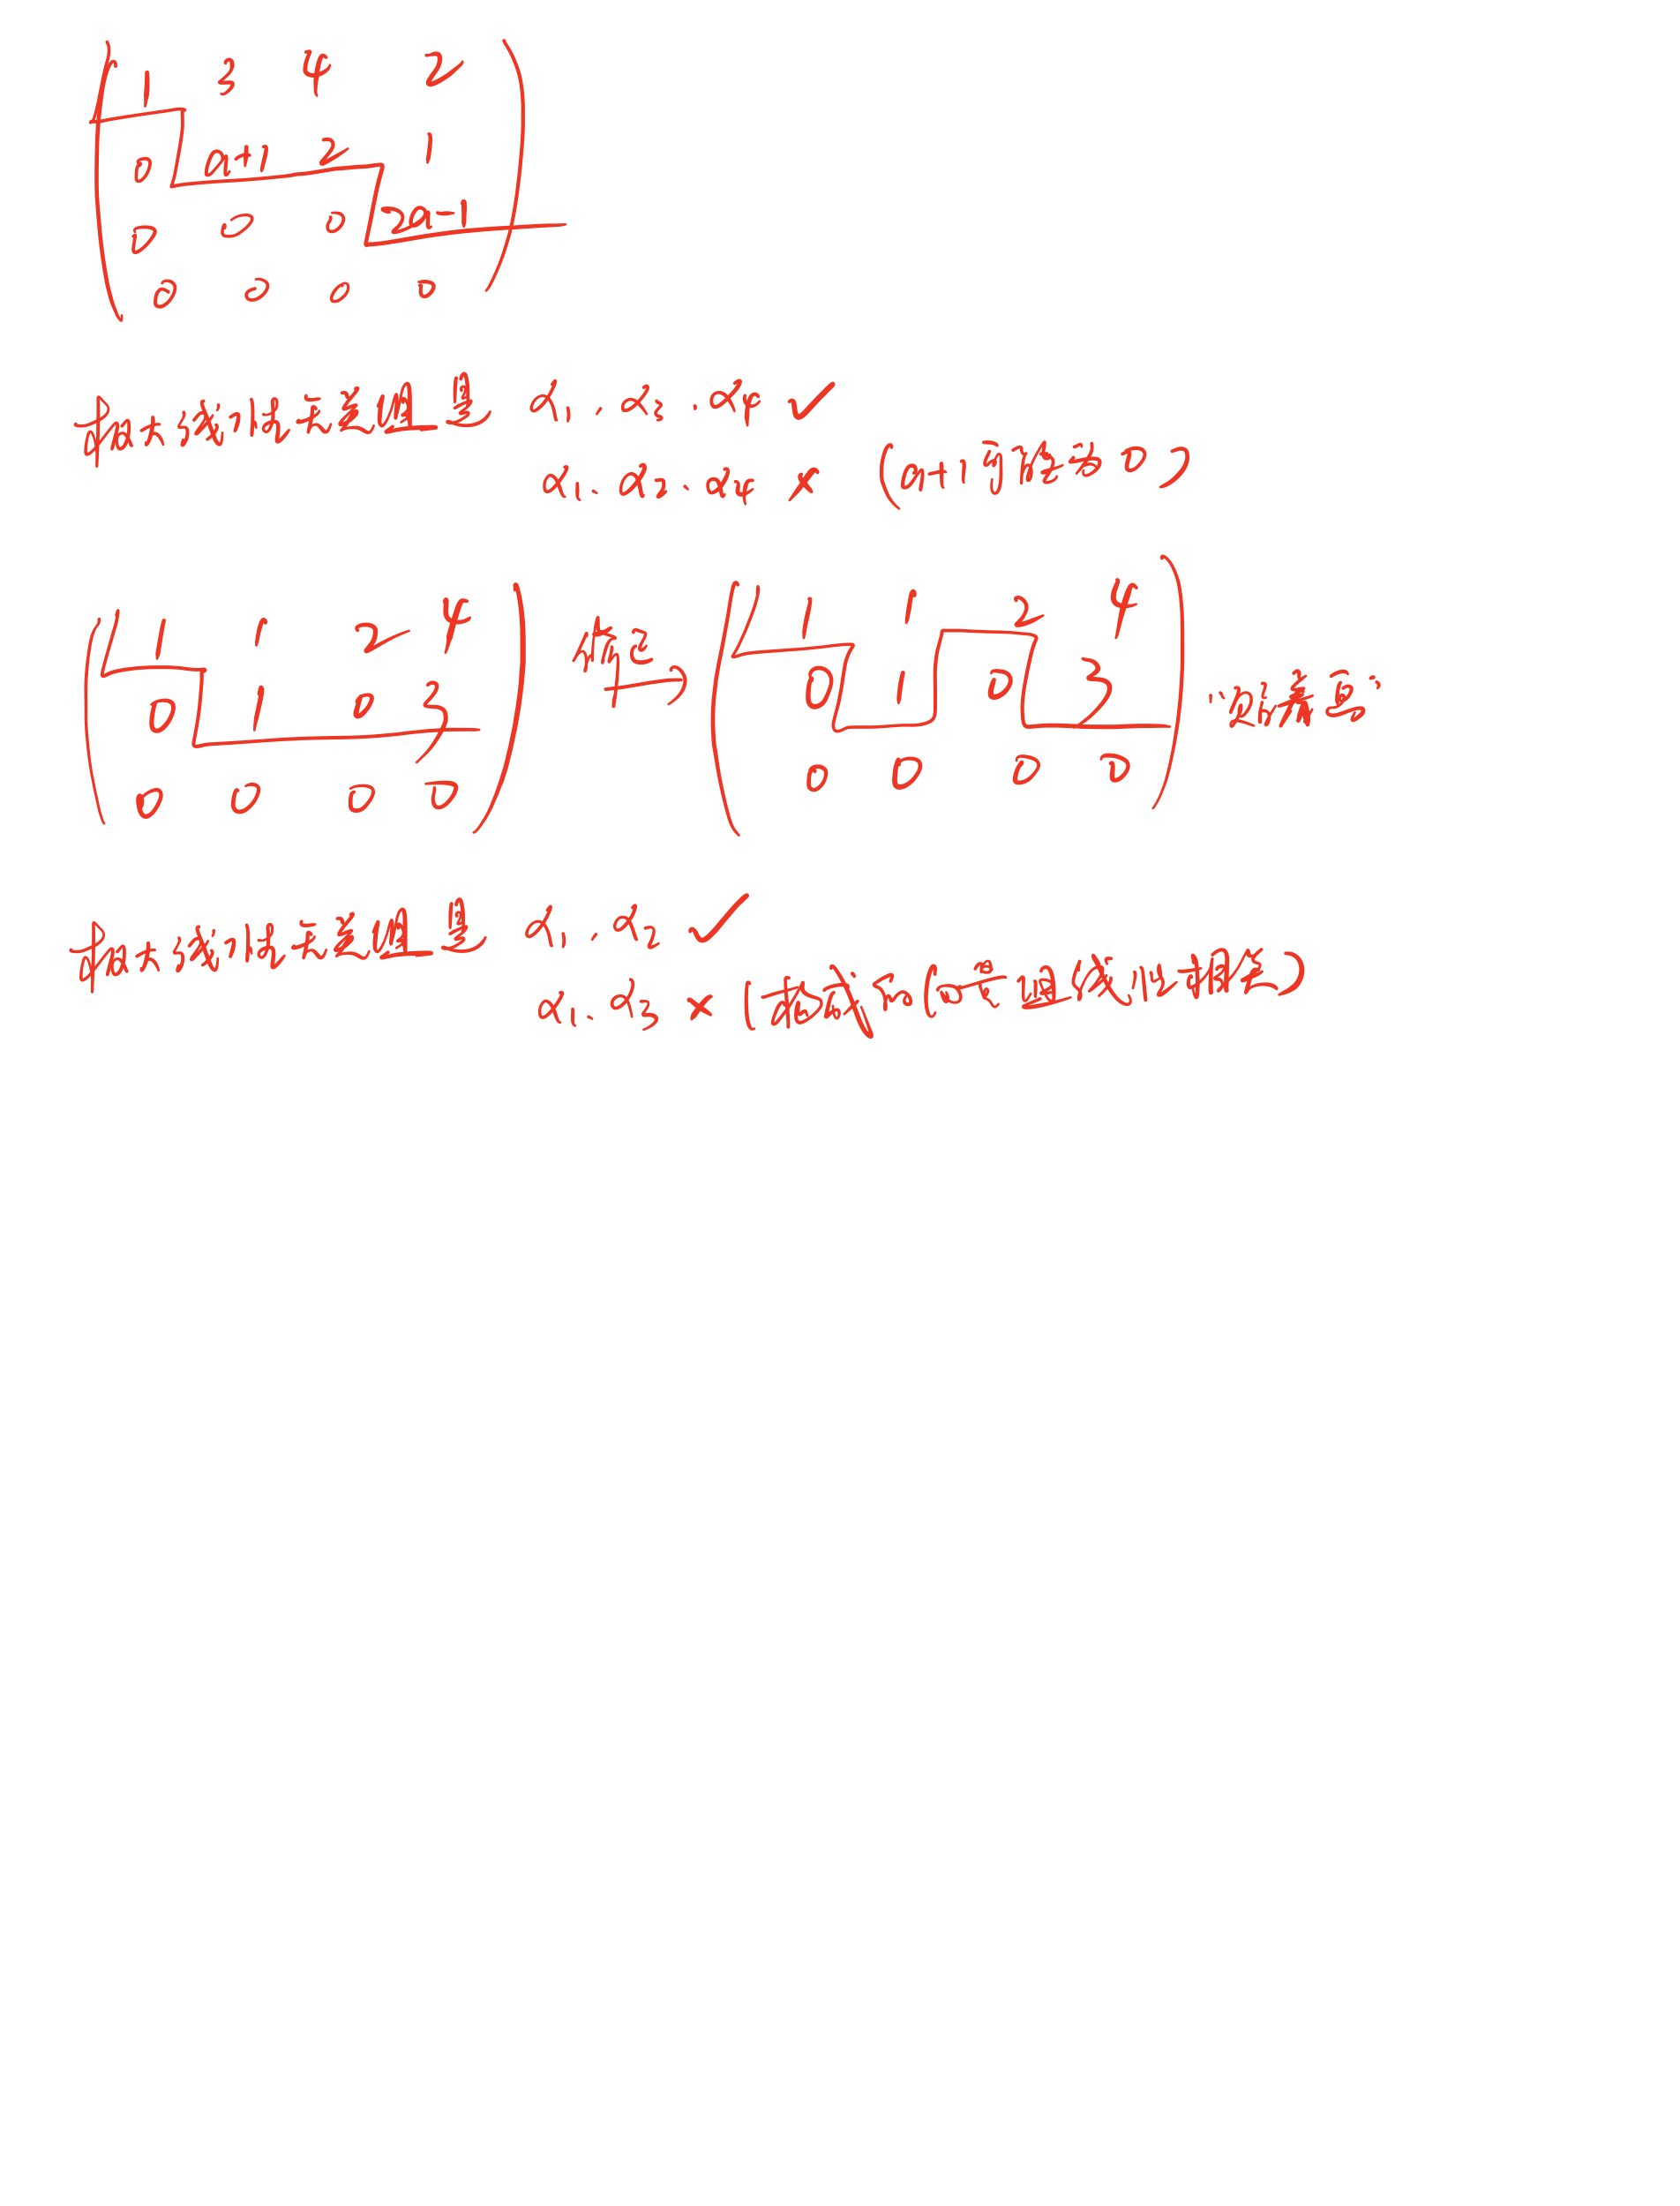 1 3 4 2
0 a+1 2 1
0 0 0 2a-1
0 0 0 0
极大线性无关组是 α₁、α₃、α₄ ✓
α₁、α₂、α₄ × (a+1可能为0)
1 1 2 4
0 1 0 3
0 0 0 0
情况
1 1 2 4
0 1 0 3
0 0 0 0
极大线性无关组是 α₁、α₂ ✓
α₁、α₃ ×